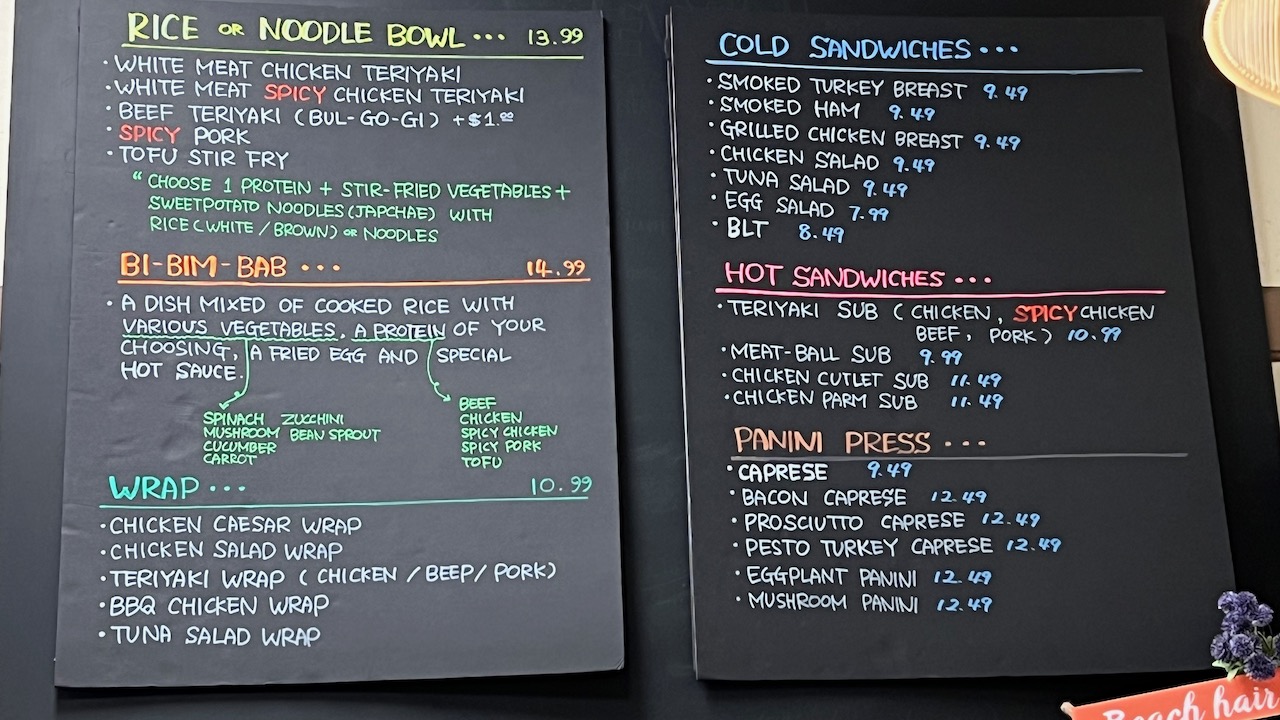 RICE OR NOODLE BOWL ... 13.99
· WHITE MEAT CHICKEN TERIYAKI
· WHITE MEAT SPICY CHICKEN TERIYAKI
· BEEF TERIYAKI (BUL-GO-GI) +$1.00
· SPICY PORK
· TOFU STIR FRY
" CHOOSE 1 PROTEIN + STIR-FRIED VEGETABLES +
SWEETPOTATO NOODLES (JAPCHAE) WITH
RICE (WHITE / BROWN) OR NOODLES
BI-BIM-BAB ... 14.99
· A DISH MIXED OF COOKED RICE WITH
VARIOUS VEGETABLES. A PROTEIN OF YOUR
CHOOSING, A FRIED EGG AND SPECIAL
HOT SAUCE.
SPINACH ZUCCHINI
MUSHROOM BEAN SPROUT
CUCUMBER
CARROT
BEEF
CHICKEN
SPICY CHICKEN
SPICY PORK
TOFU
WRAP ... 10.99
· CHICKEN CAESAR WRAP
· CHICKEN SALAD WRAP
· TERIYAKI WRAP (CHICKEN / BEEP / PORK)
· BBQ CHICKEN WRAP
· TUNA SALAD WRAP
COLD SANDWICHES ...
· SMOKED TURKEY BREAST 9.49
· SMOKED HAM 9.49
· GRILLED CHICKEN BREAST 9.49
· CHICKEN SALAD 9.49
· TUNA SALAD 9.49
· EGG SALAD 7.99
· BLT 8.49
HOT SANDWICHES ...
· TERIYAKI SUB (CHICKEN, SPICY CHICKEN
BEEF, PORK) 10.99
· MEAT-BALL SUB 9.99
· CHICKEN CUTLET SUB 11.49
· CHICKEN PARM SUB 11.49
PANINI PRESS ...
· CAPRESE 9.49
· BACON CAPRESE 12.49
· PROSCIUTTO CAPRESE 12.49
· PESTO TURKEY CAPRESE 12.49
· EGGPLANT PANINI 12.49
· MUSHROOM PANINI 12.49
Beach hair